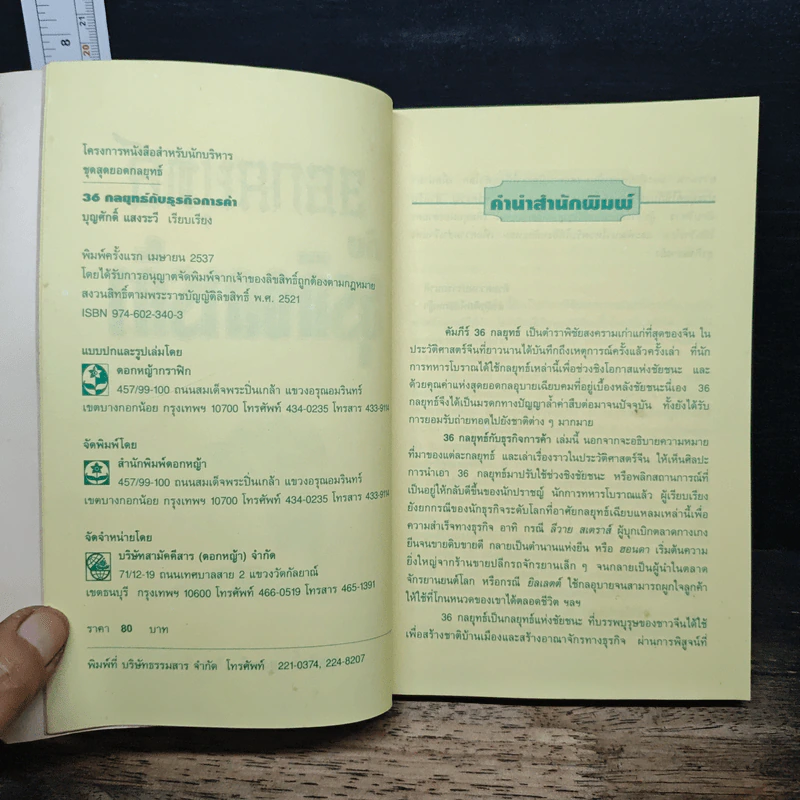 โครงการหนังสือสำหรับนักบริหาร
ชุดสุดยอดกลยุทธ์
36 กลยุทธ์กับธุรกิจการค้า
บุญศักดิ์ แสงระวี เรียบเรียง
พิมพ์ครั้งแรก เมษายน 2537
โดยได้รับการอนุญาตจัดพิมพ์จากเจ้าของลิขสิทธิ์ถูกต้องตามกฎหมาย
สงวนสิทธิ์ตามพระราชบัญญัติลิขสิทธิ์ พ.ศ. 2521
ISBN 974-602-340-3
แบบปกและรูปเล่มโดย
ดอกหญ้ากราฟิก
457/99-100 ถนนสมเด็จพระปิ่นเกล้า แขวงอรุณอมรินทร์
เขตบางกอกน้อย กรุงเทพฯ 10700 โทรศัพท์ 434-0235 โทรสาร 433-9114
จัดพิมพ์โดย
สำนักพิมพ์ดอกหญ้า
457/99-100 ถนนสมเด็จพระปิ่นเกล้า แขวงอรุณอมรินทร์
เขตบางกอกน้อย กรุงเทพฯ 10700 โทรศัพท์ 434-0235 โทรสาร 433-9114
จัดจำหน่ายโดย
บริษัทสามัคคีสาร (ดอกหญ้า) จำกัด
71/12-19 ถนนเทศบาลสาย 2 แขวงวัดกัลยาณ์
เขตธนบุรี กรุงเทพฯ 10600 โทรศัพท์ 466-0519 โทรสาร 465-1391
ราคา 80 บาท
พิมพ์ที่ บริษัทธรรมสาร จำกัด โทรศัพท์ 221-0374, 224-8207
คำนำสำนักพิมพ์
คัมภีร์ 36 กลยุทธ์ เป็นตำราพิชัยสงครามเก่าแก่ที่สุดของจีน ใน
ประวัติศาสตร์จีนที่ยาวนานได้บันทึกถึงเหตุการณ์ครั้งแล้วครั้งเล่า ที่นัก
การทหารโบราณได้ใช้กลยุทธ์เหล่านี้เพื่อช่วงชิงโอกาสแห่งชัยชนะ และ
ด้วยคุณค่าแห่งสุดยอดกลอุบายเฉียบคมที่อยู่เบื้องหลังชัยชนะนี่เอง 36
กลยุทธ์จึงได้เป็นมรดกทางปัญญาล้ำค่าสืบต่อมาจนปัจจุบัน ทั้งยังได้รับ
การยอมรับถ่ายทอดไปยังชาติต่าง ๆ มากมาย
36 กลยุทธ์กับธุรกิจการค้า เล่มนี้ นอกจากจะอธิบายความหมาย
ที่มาของแต่ละกลยุทธ์ และเล่าเรื่องราวในประวัติศาสตร์จีน ให้เห็นศิลปะ
การนำเอา 36 กลยุทธ์มาปรับใช้ช่วงชิงชัยชนะ หรือพลิกสถานการณ์ที่
เป็นอยู่ให้กลับดีขึ้นของนักปราชญ์ นักการทหารโบราณแล้ว ผู้เรียบเรียง
ยังยกกรณีของนักธุรกิจระดับโลกที่อาศัยกลยุทธ์เฉียบแหลมเหล่านี้เพื่อ
ความสำเร็จทางธุรกิจ อาทิ กรณี ลีวาย สเตราส์ ผู้บุกเบิกตลาดกางเกง
ยีนจนขายดิบขายดี กลายเป็นตำนานแห่งยีน หรือ ฮอนดา เริ่มต้นความ
ยิ่งใหญ่จากร้านขายปลีกรถจักรยานเล็ก ๆ จนกลายเป็นผู้นำในตลาด
จักรยานยนต์โลก หรือกรณี ยิลเลตต์ ใช้กลอุบายจนสามารถผูกใจลูกค้า
ให้ใช้ที่โกนหนวดของเขาได้ตลอดชีวิต ฯลฯ
36 กลยุทธ์เป็นกลยุทธ์แห่งชัยชนะ ที่บรรพบุรุษของชาวจีนได้ใช้
เพื่อสร้างชาติบ้านเมืองและสร้างอาณาจักรทางธุรกิจ ผ่านการพิสูจน์ที่
8
20
21